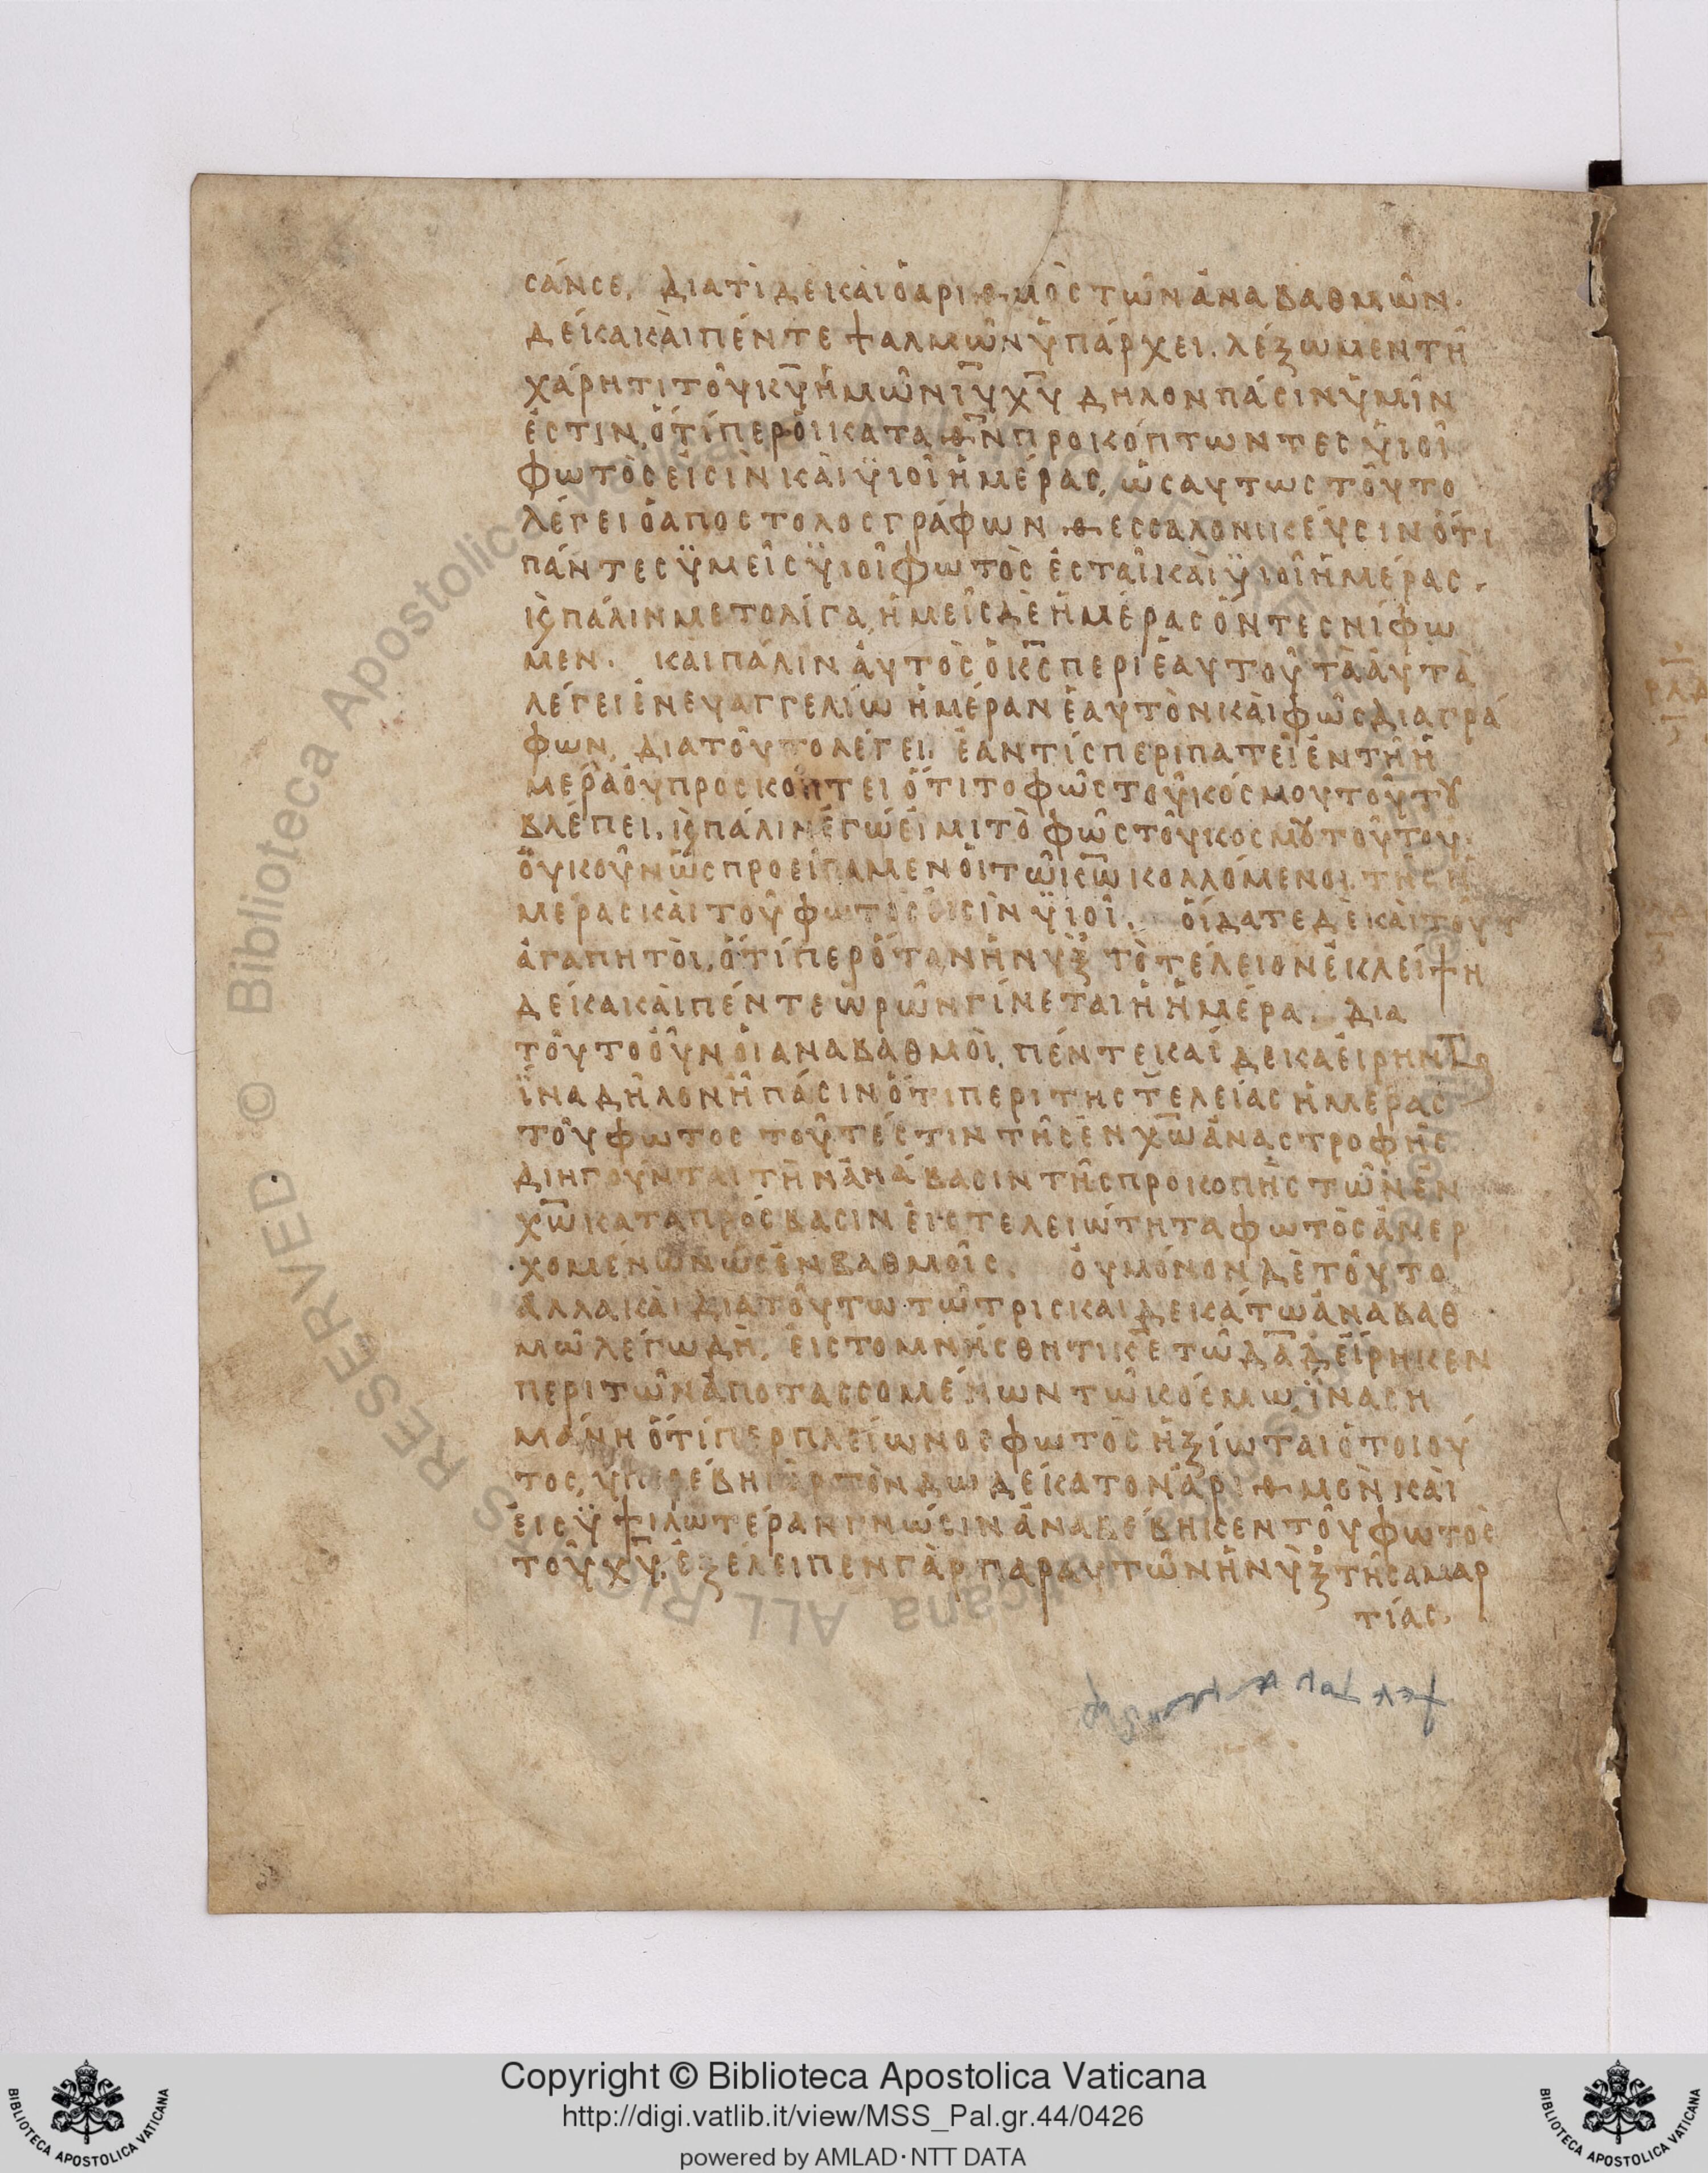 σάνσε, διατὶ δὲ καὶ ὁ ἀριθμὸς τῶν ἀναβαθμῶν.
δέικα καὶ πέντε ψαλμῶν ὑπάρχει. λέξωμεν τῆ
χάρητι τοῦ κ̅υ̅ ἡμῶν ι̅υ̅ χ̅υ̅ δηλον πάσιν ὑμῖν
ἐστιν, ὅτίπερ ὁι κατα θ̅ν̅ προικόπτωντες ὑιοὶ
φωτὸς εἰσὶν καὶ ὑιοὶ ἡμέρας, ὡσαυτως τοῦτο
λέγει ὁ αποστολος γράφων θεσσαλονικέυσιν ὅτι
πάντες ὑμεῖς ὑιοὶ φωτὸς ἐσταὶ καὶ ὑιοὶ ἡμέρας.
κ̀ς πάλιν μετολίγα, ἡμεῖς δὲ ἡμέρας ὄντες νίφω
μεν. και πάλιν ἀυτὸς ὁ κ̅ς̅ περι ἑαυτοῦ τὰ ἀυτὰ
λέγει ἐν ευαγγελίω ἡμέραν ἑαυτὸν καὶ φῶς διαγρά
φων, διατοῦτο λέγει. ἐάν τίς περιπατεῖ ἐν τῆ ἡ
μέρα ὀυ προσκόπτει ὅτι το φῶς τοῦ κόσμου τούτȣ
βλέπει. κ̀ς πάλιν ἐγώ ἐιμι τὸ φῶς τοῦ κοσμȣ τούτου.
ὀυκοῦν ὡς προείπαμεν ὁι τῶ κ̅ω̅ κολλόμενοι τῆς ἡ
μέρας καὶ τοῦ φωτὸς ἐισὶν ὑιοὶ. ὀίδατε δὲ καὶ τοῦτ
ἀγαπητοὶ, ὅτίπερ ὅταν ἡ νὺξ τὸ τέλειον ἐκλείψη
δέικα καὶ πέντε ὡρῶν γίνεται ἡ ἡμέρα. δια
τοῦτο ὀῦν ὁι αναβαθμοὶ, πέντε καὶ δεκα ἐιρηντ
ἵνα δῆλον ἦ πάσιν ὅτι περι της τελείας ἡμέρας
τοῦ φωτος τουτέστιν τῆς ἐν χ̅ω̅ ἀναστροφῆς
διηγοῦνται τὴν ἀνάβασιν τῆς προικοπῆς τῶν ἐν
χ̅ω̅ κατα πρόσβασιν ἐις τελειώτητα φωτὸς ἀνερ
χομένων ὡς ἐν βαθμοῖς. ὀυ μόνον δὲ τοῦτο
ἀλλα καὶ διατοῦτω τῶ τρισκαιδεικάτω ἀναβαθ
μῶ λέγω δὴ, ἐις το μνήσθητι κ̅ε̅ τῶ δ̅α̅δ̅ ἐίρηκεν
περι τῶν ἀποτασσομένων τῶ κόσμω, ἵνα ση
μάνη ὅτίπερ πλείωνος φωτὸς ἠξίωται ὁ τοιοῦ
τος, ὑπερέβη γὰρ τὸν δωδείκατον ἀριθμὸν καὶ
ἐις ὑψιλωτέραν γνώσιν ἀναβέβηκεν τοῦ φωτὸς
τοῦ χ̅υ̅. ἐξέλειπεν γὰρ παραυτῶν ἡ νὺξ τῆς αμαρ
τίας.
Copyright © Biblioteca Apostolica Vaticana
http://digi.vatlib.it/view/MSS_Pal.gr.44/0426
powered by AMLAD·NTT DATA
BIBLIOTECA APOSTOLICA VATICANA
BIBLIOTECA APOSTOLICA VATICANA
Biblioteca Apostolica Vaticana ALL RIGHTS RESERVED ©